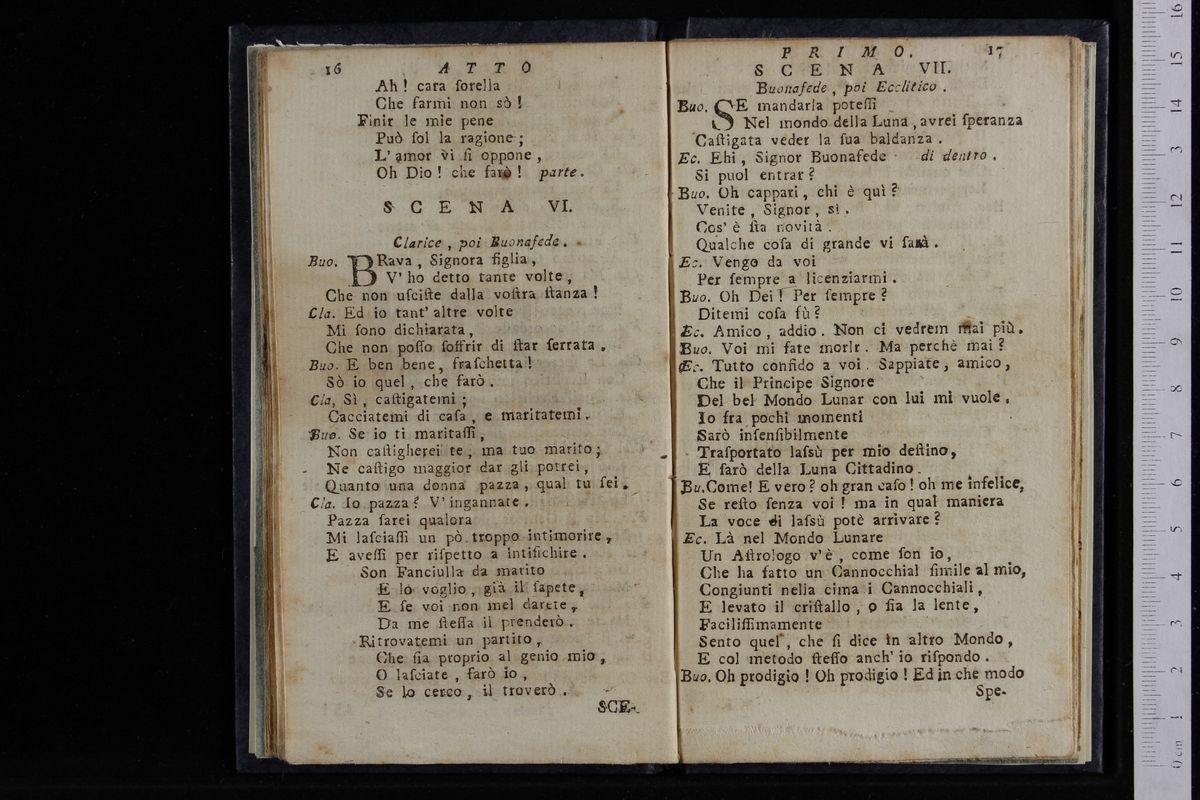 16 ATTO
Ah! cara sorella
Che farmi non sò!
Finir le mie pene
Può sol la ragione;
L' amor vi si oppone,
Oh Dio! che farò! parte.
SCENA VI.
Clarice, poi Buonafede.
Buo. BRava, Signora figlia,
V' ho detto tante volte,
Che non usciste dalla vostra stanza!
Cla. Ed io tant' altre volte
Mi sono dichiarata,
Che non posso soffrir di star serrata.
Buo. E ben bene, fraschetta!
Sò io quel, che farò.
Cla, Sì, castigatemi;
Cacciatemi di casa, e maritatemi.
Buo. Se io ti maritassi,
Non castigherei te, ma tuo marito;
Ne castigo maggior dar gli potrei,
Quanto una donna pazza, qual tu sei.
Cla. Io pazza? V' ingannate.
Pazza sarei qualora
Mi lasciassi un pò troppo intimorire,
E avessi per rispetto a intisichire.
Son Fanciulla da marito
E lo voglio, già il sapete,
E se voi non mel darete,
Da me stessa il prenderò.
Ritrovatemi un partito,
Che sia proprio al genio mio,
O lasciate, farò io,
Se lo cerco, il troverò.
SCE-
PRIMO. 17
SCENA VII.
Buonafede, poi Ecclitico.
Buo. SE mandarla potessi
Nel mondo della Luna, avrei speranza
Castigata veder la sua baldanza.
Ec. Ehi, Signor Buonafede di dentro.
Si puol entrar?
Buo. Oh cappari, chi è quì?
Venite, Signor, sì.
Cos' è sta novità.
Qualche cosa di grande vi sarà.
Ec. Vengo da voi
Per sempre a licenziarmi.
Buo. Oh Dei! Per sempre?
Ditemi cosa fù?
Ec. Amico, addio. Non ci vedrem mai più.
Buo. Voi mi fate morir. Ma perchè mai?
Ec. Tutto confido a voi. Sappiate, amico,
Che il Principe Signore
Del bel Mondo Lunar con lui mi vuole.
Io fra pochi momenti
Sarò insensibilmente
Trasportato lassù per mio destino,
E sarò della Luna Cittadino.
Bu. Come! E vero? oh gran caso! oh me infelice,
Se resto senza voi! ma in qual maniera
La voce di lassù potè arrivare?
Ec. Là nel Mondo Lunare
Un Astrologo v'è, come son io,
Che ha fatto un Cannocchial simile al mio,
Congiunti nella cima i Cannocchiali,
E levato il cristallo, o sia la lente,
Facilissimamente
Sento quel, che si dice in altro Mondo,
E col metodo stesso anch' io rispondo.
Buo. Oh prodigio! Oh prodigio! Ed in che modo
Spe-
0 cm 1 2 3 4 5 6 7 8 9 10 11 12 13 14 15 16